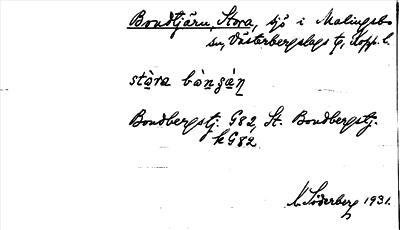 Bondtjärn, Stora, sjö i Malingsbo
sn, Västerbergslags tg, Kopp. l.
stòra bònʒán
Bondbergstj. G82, St. Bondbergstj.
k G82
M. Söderberg 1931.